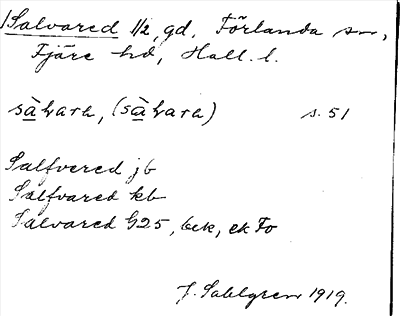 Salvared 1/2, gd, Förlanda sn,
Fjäre hd, Hall. l.
sàvara, (sàvara) s. 51
Salfvered jb
Salfvared kb
Salvared G25, bek, ek Fo
J. Sahlgren 1919.